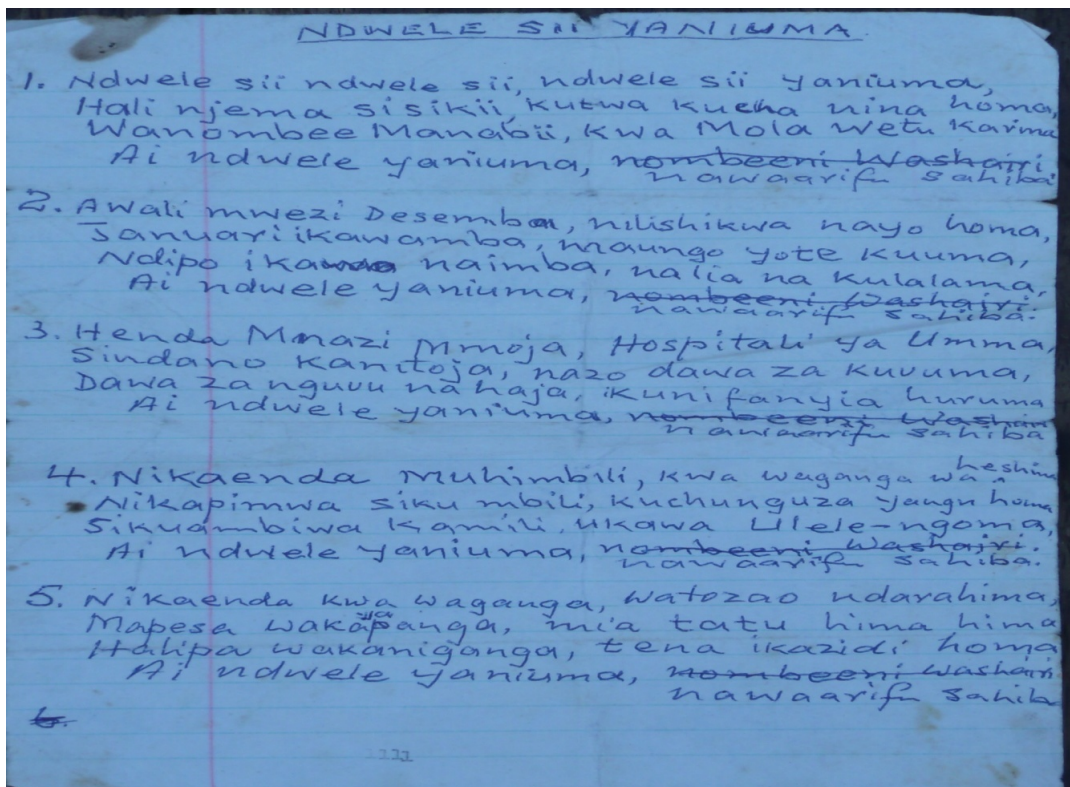 NDWELE SII YANIUMA
1. Ndwele sii ndwele sii, ndwele sii yaniuma,
Hali njema sisikii, kutwa kucha nina homa,
Wanombee Manabii, kwa Mola wetu Karima
Ai ndwele yaniuma, nombeeni Washairi
nawaarifu sahiba
2. Awali mwezi Desemba, nilishikwa nayo homa,
Januari ikawamba, maungo yote kuuma,
Ndipo ika naimba, nalia na kulalama,
Ai ndwele yaniuma, nombeeni Washairi.
nawaarifu sahiba.
3. Henda Mnazi Mmoja, Hospitali ya Umma,
Sindano kanitoja, nazo dawa za kuvuma,
Dawa za nguvu na haja, kunifanyia huruma
Ai ndwele yaniuma, nombeeni Washairi
nawaarifu sahiba
4. Nikaenda Muhimbili, kwa waganga wa heshima
Nikapimwa siku mbili, kuchunguza yangu homa
Sikuambiwa kamili, ukawa Ulele-ngoma,
Ai ndwele yaniuma, nombeeni Washairi.
nawaarifu sahiba.
5. Nikaenda kwa waganga, watozao ndarahima,
Mapesa wakayapanga, mia tatu hima hima
Halipa wakaniganga, tena ikazidi homa
Ai ndwele yaniuma, nombeeni Washairi
nawaarifu sahiba
6.